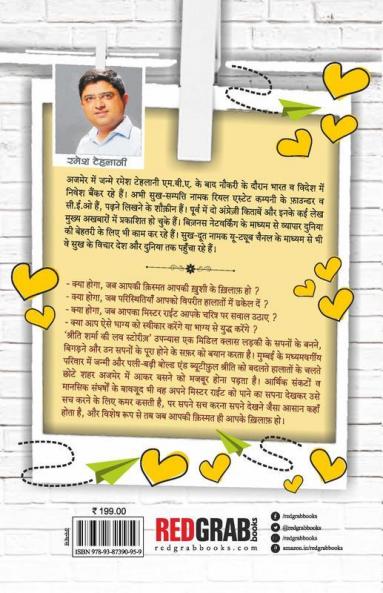 रमेश टेहलानी
अजमेर में जन्में रमेश टेहलानी एम.बी.ए. के बाद नौकरी के दौरान भारत व विदेश में
निवेश बैंकर रहे हैं। अभी सुख-सम्पत्ति नामक रियल एस्टेट कम्पनी के फ़ाउन्डर व
सी.ई.ओ हैं, पढ़ने लिखने के शौक़ीन हैं। पूर्व में दो अंग्रेज़ी किताबें और इनके कई लेख
मुख्य अखबारों में प्रकाशित हो चुके हैं। बिज़नस नेटवर्किंग के माध्यम से व्यापार दुनिया
की बेहतरी के लिए भी काम कर रहे हैं। सुख-दूत नामक यू-ट्यूब चैनल के माध्यम से भी
वे सुख के विचार देश और दुनिया तक पहुँचा रहे हैं।
- क्या होगा, जब आपकी क़िस्मत आपकी ख़ुशी के ख़िलाफ़ हो ?
- क्या होगा, जब परिस्थितियाँ आपको विपरीत हालातों में ढकेल दें ?
- क्या होगा, जब आपका मिस्टर राईट आपके चरित्र पर सवाल उठाए ?
- क्या आप ऐसे भाग्य को स्वीकार करेंगे या भाग्य से युद्ध करेंगे ?
'श्रीति शर्मा की लव स्टोरीज़' उपन्यास एक मिडिल क्लास लड़की के सपनों के बनने,
बिगड़ने और उन सपनों के पूरा होने के सफ़र को बयाना करता है। मुम्बई के मध्यमवर्गीय
परिवार में जन्मी और पली-बढ़ी बोल्ड एंड ब्यूटीफुल श्रीति को बदलते हालातों के चलते
छोटे शहर अजमेर में आकर बसने को मजबूर होना पड़ता है। आर्थिक संकटों व
मानसिक संघर्षों के बावजूद भी वह अपने मिस्टर राईट को पाने का सपना देखकर उसे
सच करने के लिए कमर कसती है, पर सपने सच करना सपने देखने जैसा आसान कहाँ
होता है, और विशेष रूप से तब जब आपकी क़िस्मत ही आपके ख़िलाफ़ हो।
₹ 199.00
उपन्यास
ISBN: 978-93-87390-95-9
REDGRAB books
redgrabbooks.com
/redgrabbooks
@redgrabbooks
/redgrabbooks
amazon.in/redgrabbooks